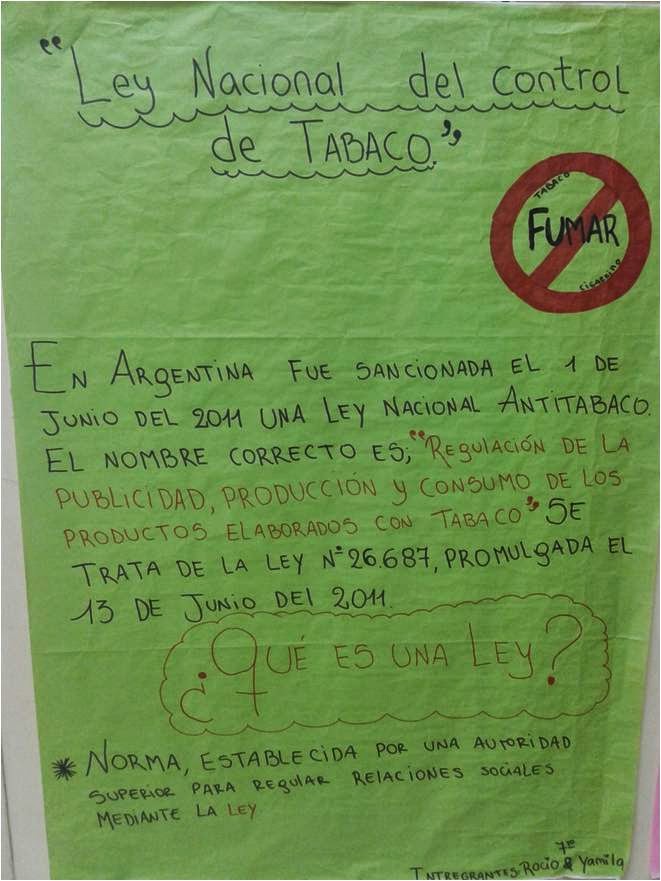 "Ley Nacional del control
de TABACO."
TABACO
FUMAR
CIGARRILLO
EN ARGENTINA FUE SANCIONADA EL 1 DE
JUNIO DEL 2011 UNA LEY NACIONAL ANTITABACO.
EL NOMBRE CORRECTO ES; "REGULACIÓN DE LA
PUBLICIDAD, PRODUCCIÓN y CONSUMO DE LOS
PRODUCTOS ELABORADOS CON TABACO" SE
TRATA DE LA LEY N° 26.687, PROMULGADA EL
13 DE JUNIO DEL 2011.
¿QUÉ ES UNA LEY?
* NORMA, ESTABLECIDA POR UNA AUTORIDAD
SUPERIOR PARA REGULAR RELACIONES SOCIALES
MEDIANTE LA LEY
7E
INTREGRANTES: ROCIO & Yamila